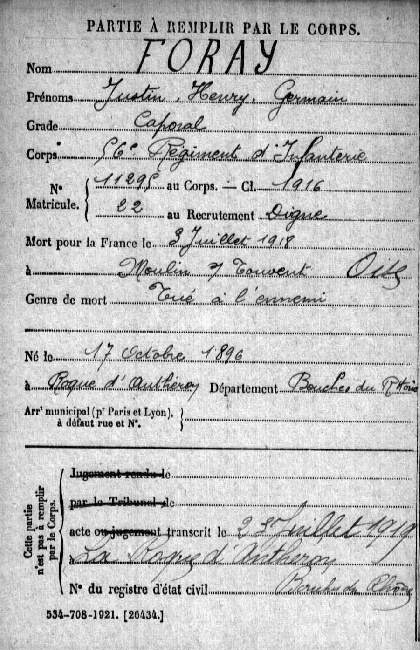 PARTIE À REMPLIR PAR LE CORPS.
Nom FORAY
Prénoms Justin, Henry, Germain
Grade Caporal
Corps 56e Régiment d'Infanterie
N° Matricule. { 11295 au Corps. — Cl. 1916
22 au Recrutement Digne
Mort pour la France le 3 Juillet 1918
à Moulin s/ Touvent Oise
Genre de mort Tué à l'ennemi
Né le 17 Octobre 1896
à Roque d'Anthéron Département Bouches du Rhône
Arrt municipal (pr Paris et Lyon),
à défaut rue et N°.
Cette partie n'est pas à remplir par le Corps.
Jugement rendu le
par le Tribunal de
acte ou jugement transcrit le 23 Juillet 1919
à La Roque d'Antheron
N° du registre d'état civil Bouches du Rhône
534-708-1921. [26434.]